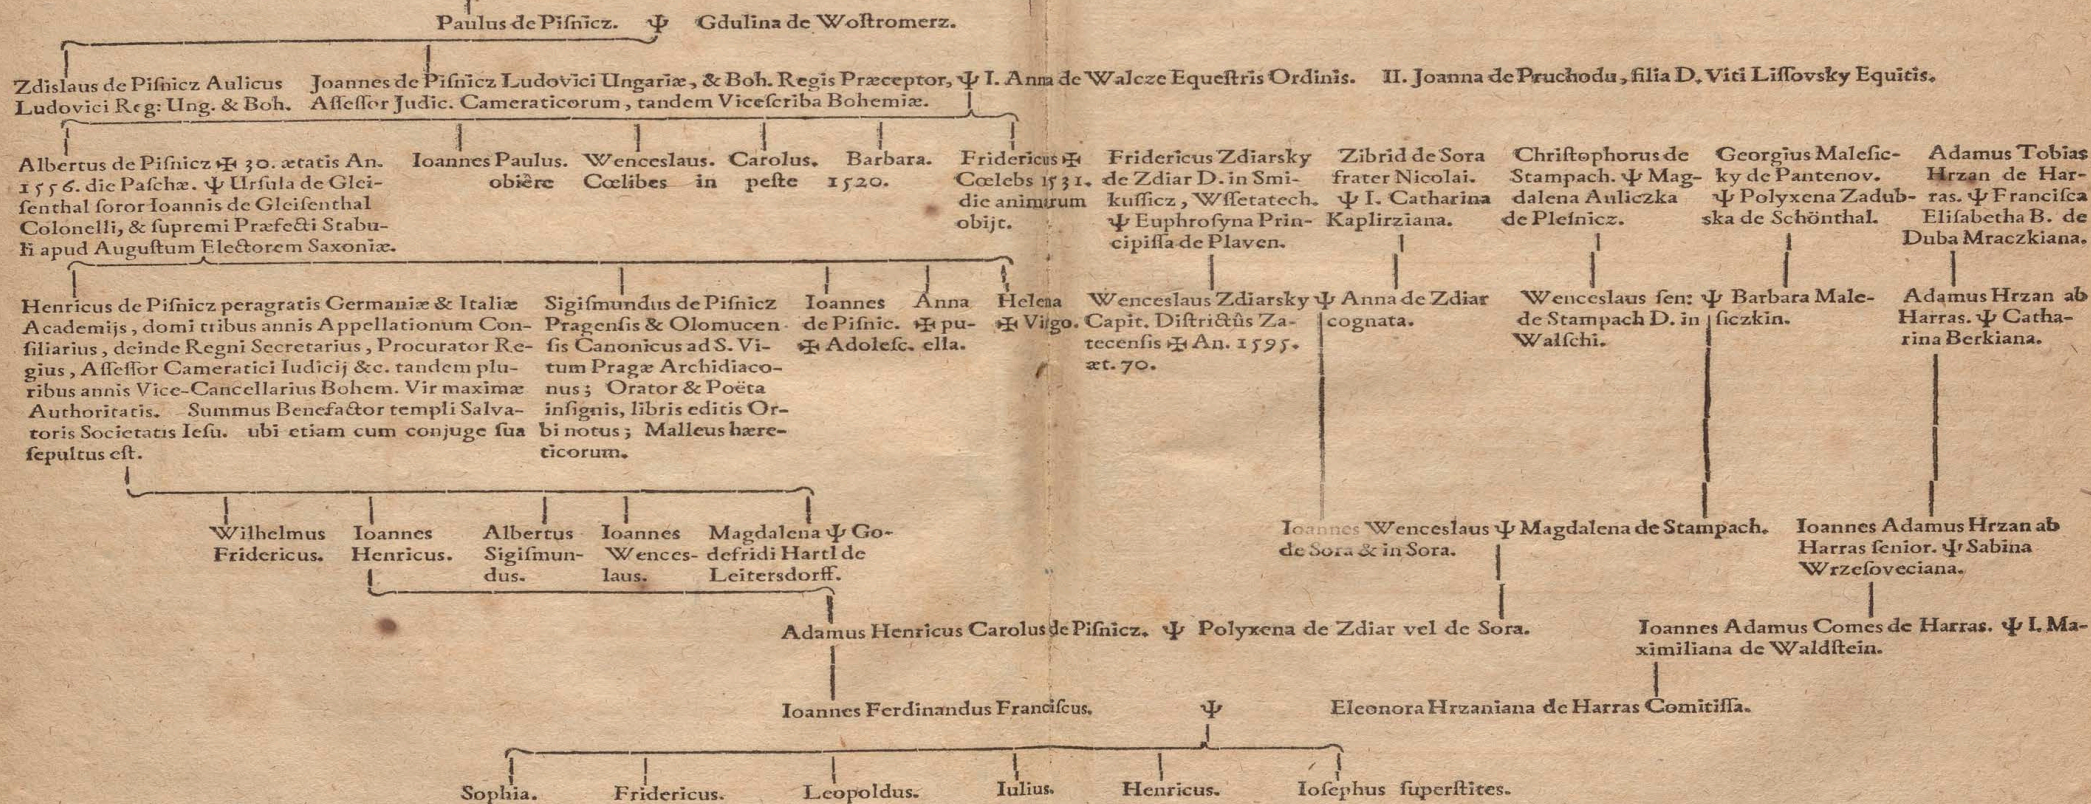 Paulus de Piſnicz. Ψ Gdulina de Woſtromerz.
Zdislaus de Piſnicz Aulicus
Ludovici Reg: Ung. & Boh.
Joannes de Piſnicz Ludovici Ungariæ, & Boh. Regis Præceptor, Ψ I. Anna de Walcze Equeſtris Ordinis. II. Joanna de Pruchodu, filia D. Viti Liſſovsky Equitis.
Aſſeſſor Judic. Cameraticorum, tandem Viceſcriba Bohemiæ.
Albertus de Piſnicz ✠ 30. ætatis An.
1556. die Paſchæ. Ψ Urſula de Glei-
ſenthal ſoror Ioannis de Gleiſenthal
Colonelli, & ſupremi Præfecti Stabu-
li apud Auguſtum Electorem Saxoniæ.
Ioannes Paulus. Wenceslaus. Carolus. Barbara.
obiêre Cœlibes in peſte 1520.
Fridericus ✠
Cœlebs 1531.
die animarum
obijt.
Fridericus Zdiarsky
de Zdiar D. in Smi-
kuſſicz, Wſſetatech.
Ψ Euphroſyna Prin-
cipiſſa de Plaven.
Zibrid de Sora
frater Nicolai.
Ψ I. Catharina
Kaplirziana.
Chriſtophorus de
Stampach. Ψ Mag-
dalena Auliczka
de Pleſnicz.
Georgius Maleſic-
ky de Pantenov.
Ψ Polyxena Zadub-
ska de Schönthal.
Adamus Tobias
Hrzan de Har-
ras. Ψ Franciſca
Eliſabetha B. de
Duba Mraczkiana.
Henricus de Piſnicz peragratis Germaniæ & Italiæ
Academijs, domi tribus annis Appellationum Con-
ſiliarius, deinde Regni Secretarius, Procurator Re-
gius, Aſſeſſor Cameratici Iudicij &c. tandem plu-
ribus annis Vice-Cancellarius Bohem. Vir maximæ
Authoritatis. Summus Benefactor templi Salva-
toris Societatis Ieſu. ubi etiam cum conjuge ſua
ſepultus eſt.
Sigiſmundus de Piſnicz
Pragenſis & Olomucen-
ſis Canonicus ad S. Vi-
tum Pragæ Archidiaco-
nus; Orator & Poëta
inſignis, libris editis Or-
bi notus; Malleus hære-
ticorum.
Ioannes
de Piſnic.
✠ Adoleſc.
Anna
✠ pu-
ella.
Helena
✠ Virgo.
Wenceslaus Zdiarsky Ψ Anna de Zdiar
Capit. Diſtrictûs Za-
tecenſis ✠ An. 1595.
æt. 70.
cognata.
Wenceslaus ſen: Ψ Barbara Male-
de Stampach D. in ſiczkin.
Walſchi.
Adamus Hrzan ab
Harras. Ψ Catha-
rina Berkiana.
Wilhelmus
Fridericus.
Ioannes
Henricus.
Albertus
Sigiſmun-
dus.
Ioannes
Wences-
laus.
Magdalena Ψ Go-
defridi Hartl de
Leitersdorff.
Ioannes Wenceslaus Ψ Magdalena de Stampach.
de Sora & in Sora.
Ioannes Adamus Hrzan ab
Harras ſenior. Ψ Sabina
Wrzeſoveciana.
Adamus Henricus Carolus de Piſnicz. Ψ Polyxena de Zdiar vel de Sora.
Ioannes Adamus Comes de Harras. Ψ I. Ma-
ximiliana de Waldſtein.
Ioannes Ferdinandus Franciſcus. Ψ Eleonora Hrzaniana de Harras Comitiſſa.
Sophia. Fridericus. Leopoldus. Iulius. Henricus. Ioſephus ſuperſtites.